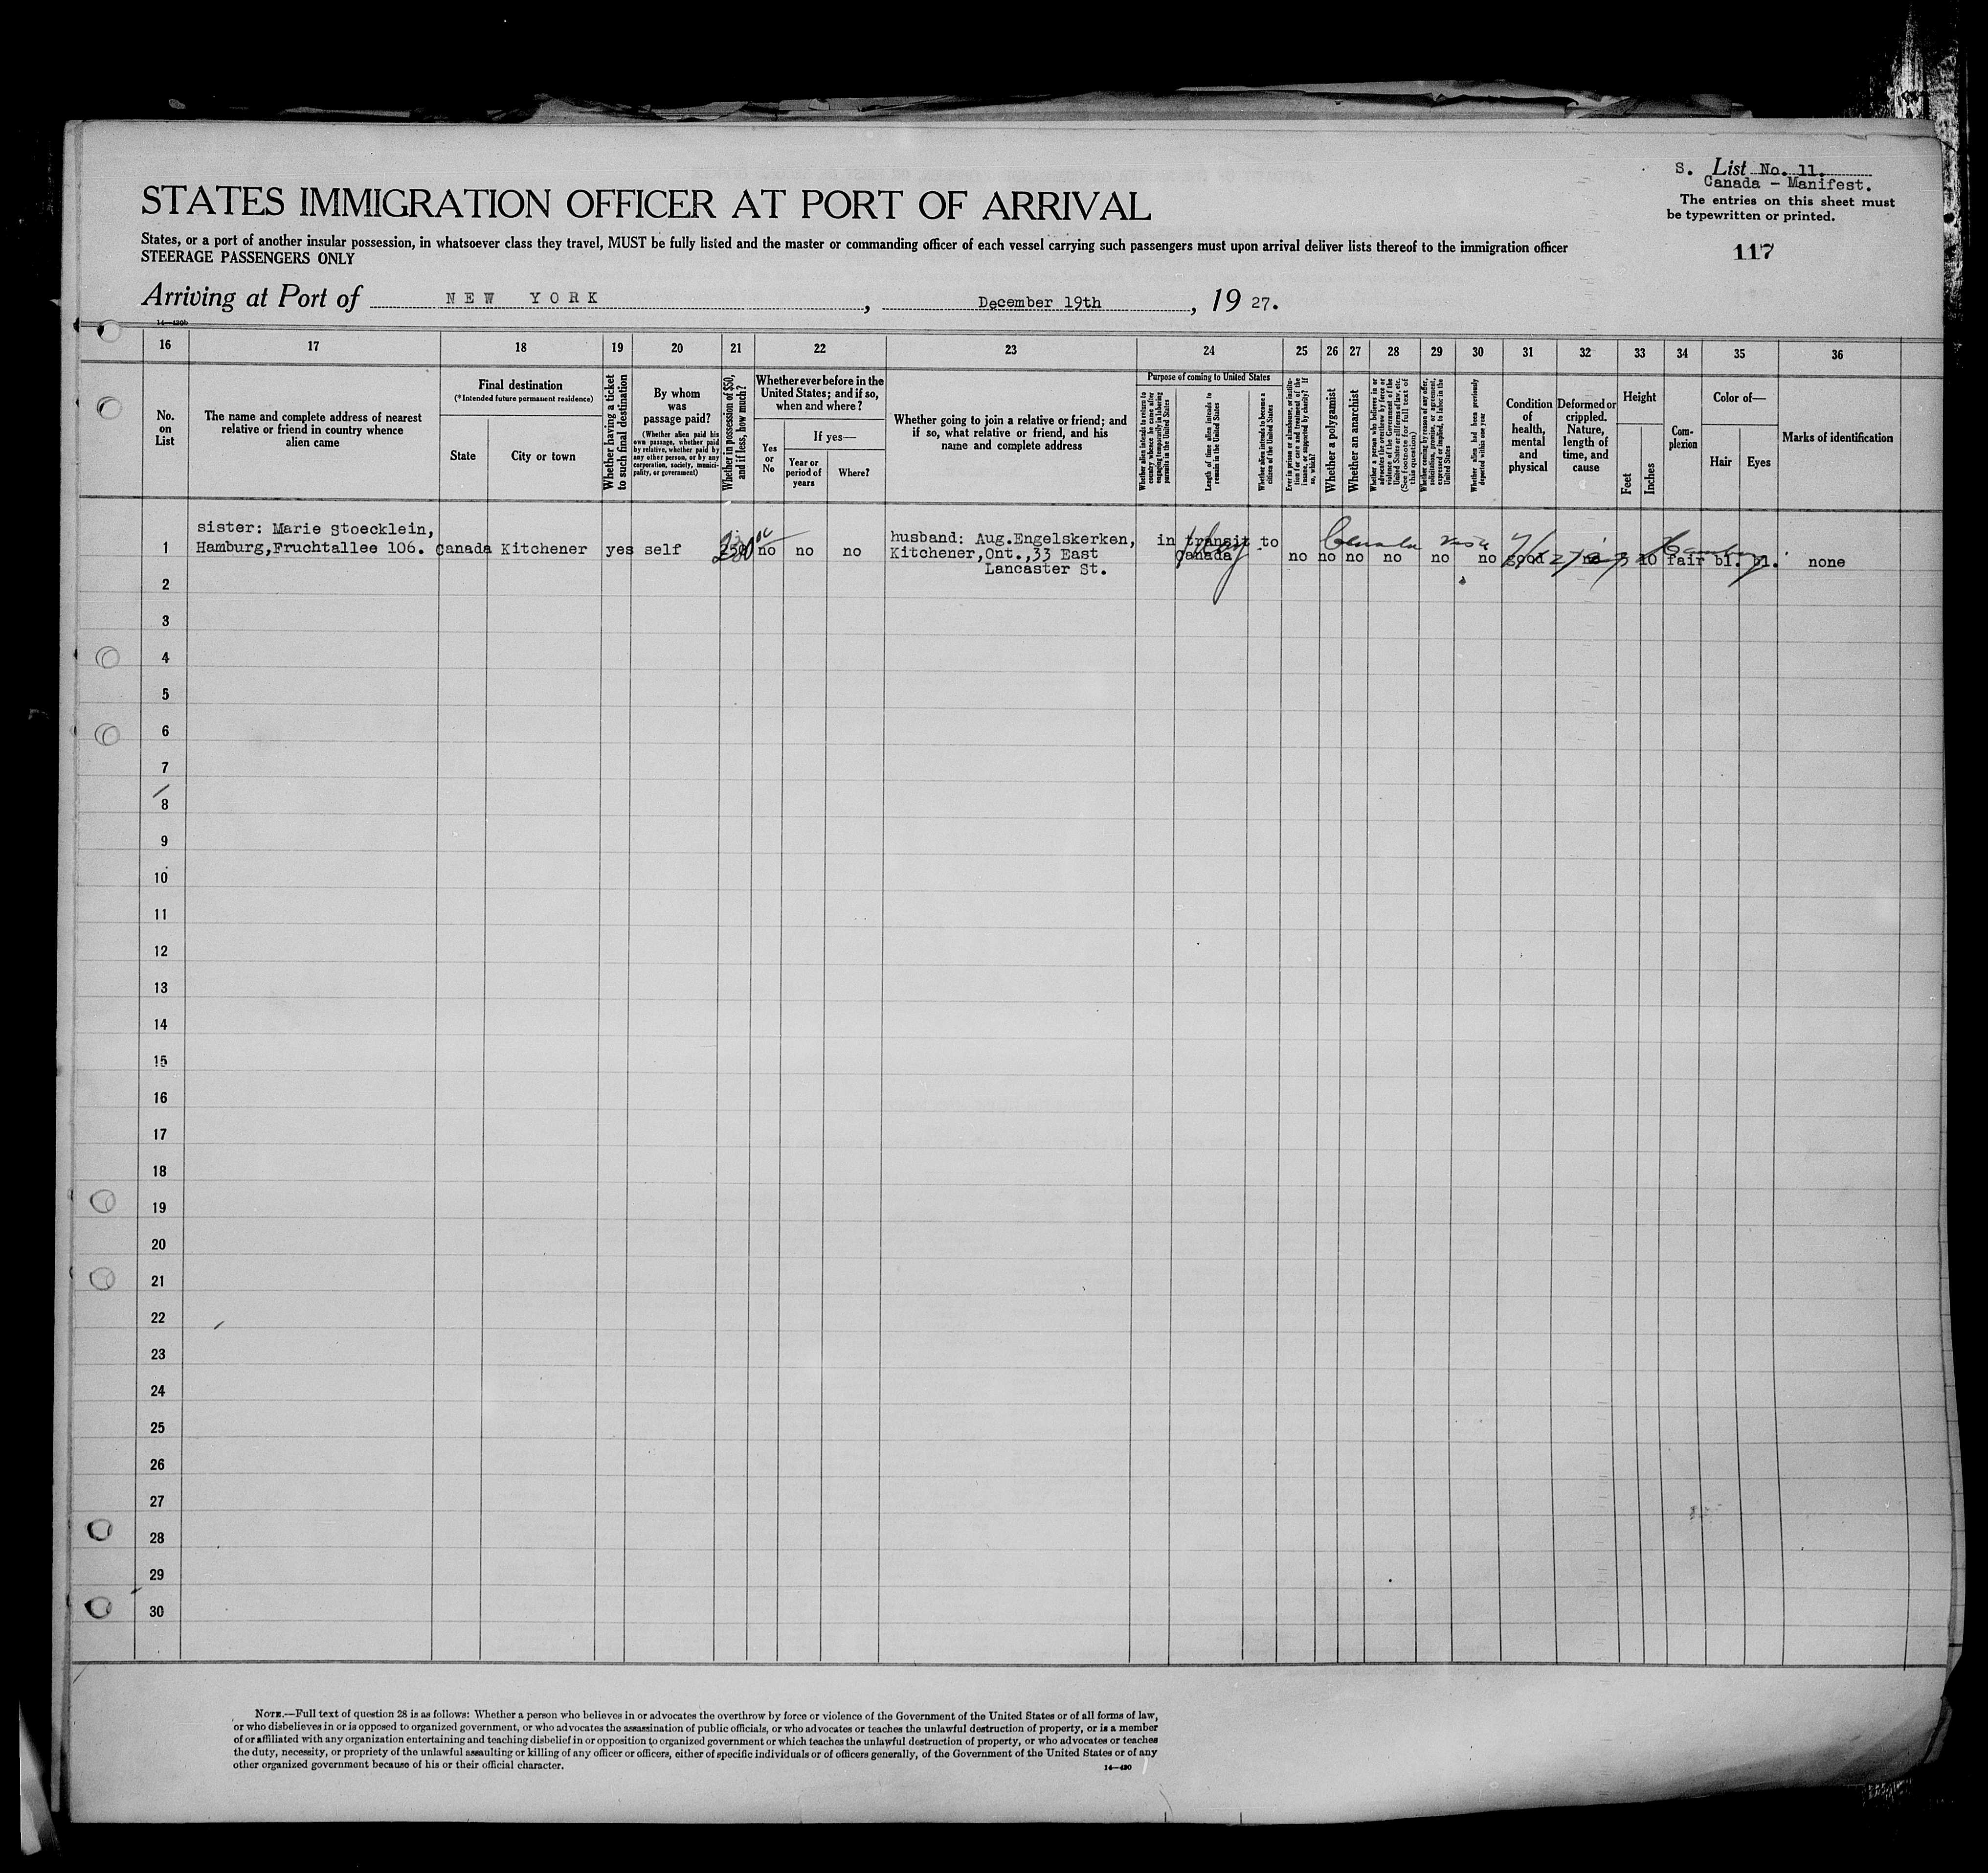 S. List No. 11.
Canada - Manifest.
The entries on this sheet must
be typewritten or printed.
117
STATES IMMIGRATION OFFICER AT PORT OF ARRIVAL
States, or a port of another insular possession, in whatsoever class they travel, MUST be fully listed and the master or commanding officer of each vessel carrying such passengers must upon arrival deliver lists thereof to the immigration officer
STEERAGE PASSENGERS ONLY
Arriving at Port of NEW YORK, December 19th, 19 27.
14—430b
16 17 18 19 20 21 22 23 24 25 26 27 28 29 30 31 32 33 34 35 36
No. on List
The name and complete address of nearest
relative or friend in country whence
alien came
Final destination
(*Intended future permanent residence)
State
City or town
Whether having a ticket
to such final destination
By whom
was
passage paid?
(Whether alien paid his
own passage, whether paid
by relative, whether paid by
any other person, or by any
corporation, society, munici-
pality, or government)
Whether in possession of $50,
and if less, how much?
Whether ever before in the
United States; and if so,
when and where?
Yes
or
No
If yes—
Year or
period of
years
Where?
Whether going to join a relative or friend; and
if so, what relative or friend, and his
name and complete address
Purpose of coming to United States
Whether alien intends to return to
country whence he came after
engaging temporarily in laboring
pursuits in the United States
Length of time alien intends to
remain in the United States
Whether alien intends to become a
citizen of the United States
Ever in prison or almshouse, or institu-
tion for care and treatment of the
insane, or supported by charity? If
so, which?
Whether a polygamist
Whether an anarchist
Whether a person who believes in or
advocates the overthrow by force or
violence of the Government of the
United States or all forms of law, etc.
(See footnote for full text of
this question)
Whether coming by reason of any offer,
solicitation, promise, or agreement,
expressed or implied, to labor in the
United States
Whether alien had been previously
deported within one year
Condition
of
health,
mental
and
physical
Deformed or
crippled.
Nature,
length of
time, and
cause
Height
Feet
Inches
Com-
plexion
Color of—
Hair
Eyes
Marks of identification
sister: Marie Stoecklein,
1 Hamburg,Fruchtallee 106. Canada Kitchener yes self no no no
husband: Aug.Engelskerken,
Kitchener,Ont.,33 East
Lancaster St.
in transit to
Canada
Canada visa
no no no no no no good no 5 10 fair bl. bl. none
2
3
4
5
6
7
8
9
10
11
12
13
14
15
16
17
18
19
20
21
22
23
24
25
26
27
28
29
30
NOTE.—Full text of question 28 is as follows: Whether a person who believes in or advocates the overthrow by force or violence of the Government of the United States or of all forms of law,
or who disbelieves in or is opposed to organized government, or who advocates the assassination of public officials, or who advocates or teaches the unlawful destruction of property, or is a member
of or affiliated with any organization entertaining and teaching disbelief in or opposition to organized government or which teaches the unlawful destruction of property, or who advocates or teaches
the duty, necessity, or propriety of the unlawful assaulting or killing of any officer or officers, either of specific individuals or of officers generally, of the Government of the United States or of any
other organized government because of his or their official character.
14—430